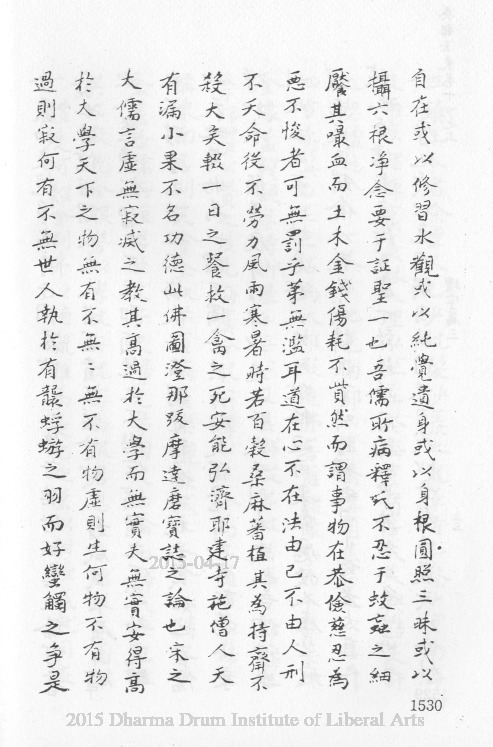 自在或以修習水觀或以純覺遺身或以身根圓照三昧或以
攝六根净念要于証聖一也吾儒所病釋氏不忍于蚊蝱之細
饜其嘬血而土木金錢傷耗不貲然而謂事物在恭儉慈忍為
惡不悛者可無罰乎第無濫耳道在心不在法由己不由人刑
不夭命役不勞力風雨寒暑時若百穀桑麻蕃植其為持齋不
殺大矣輟一日之餐救一禽之死安能弘濟耶建寺施僧人天
有漏小果不名功德此佛圖澄那跋摩達磨寶誌之論也宋之
大儒言虛無寂滅之教其高過於大學而無實夫無實安得高
於大學天下之物無有不無〻無不有物虛則生何物不有物
過則寂何有不無世人執於有襲蜉蝣之羽而好蠻觸之争是
1530
2015-04-17
2015 Dharma Drum Institute of Liberal Arts